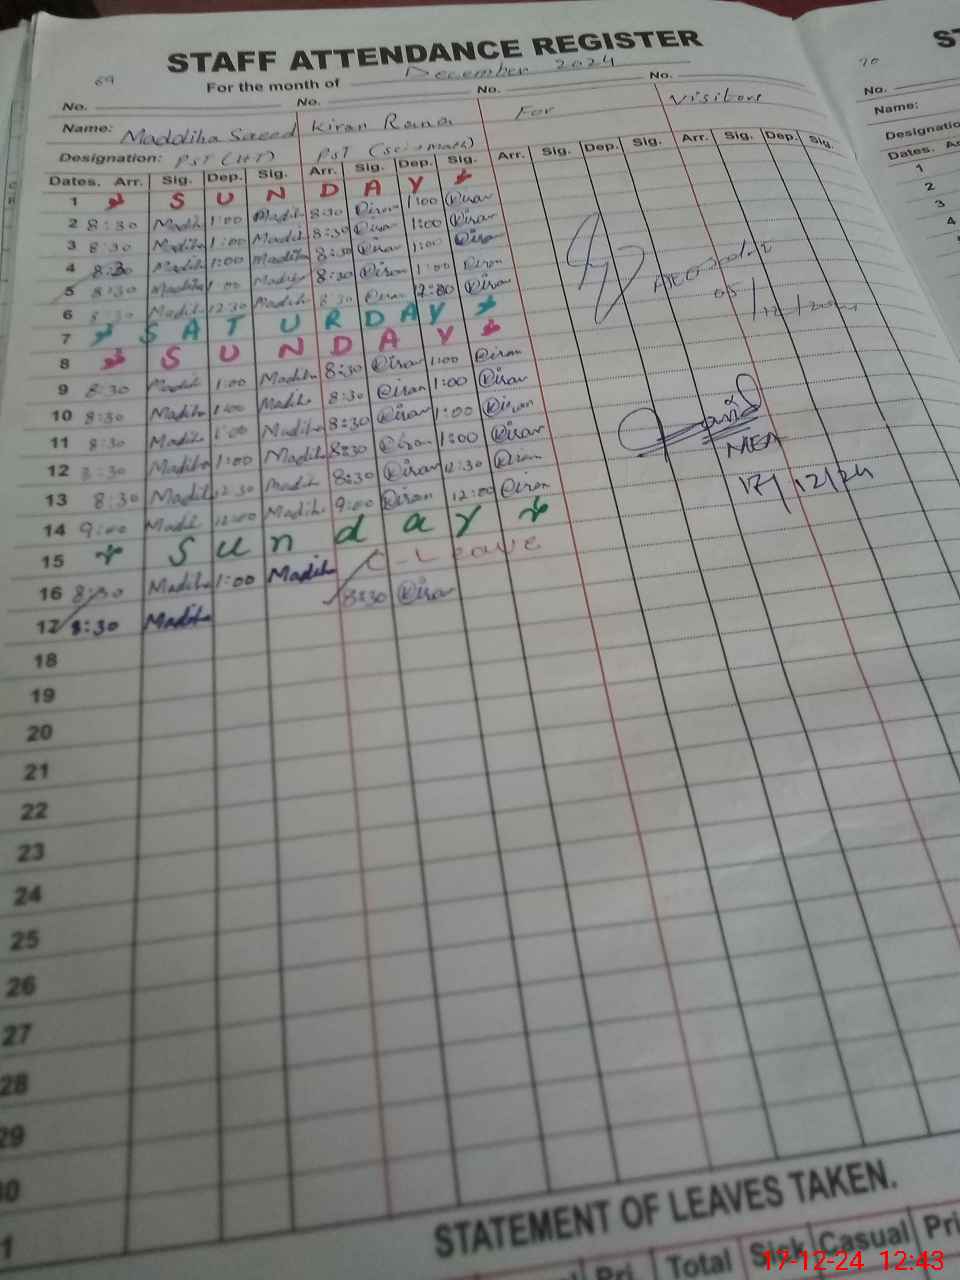 STAFF ATTENDANCE REGISTER
69 For the month of December 2024
No. No. No. No.
Name: Maddiha Saeed Kiran Rana For Visitors
Designation: PST (HT) PST (Sci-math)
Dates. Arr. Sig. Dep. Sig. Arr. Sig. Dep. Sig. Arr. Sig. Dep. Sig. Arr. Sig. Dep. Sig.
1 S U N D A Y
2 8:30 Madiha 1:00 Madiha 8:30 Kiran 1:00 Kiran
3 8:30 Madiha 1:00 Madiha 8:30 Kiran 1:00 Kiran
4 8:30 Madiha 1:00 Madiha 8:30 Kiran 1:00 Kiran
5 8:30 Madiha 1:00 Madiha 8:30 Kiran 1:00 Kiran
6 8:30 Madiha 12:30 Madiha 8:30 Kiran 12:00 Kiran
7 S A T U R D A Y
8 S U N D A Y
9 8:30 Madiha 1:00 Madiha 8:30 Kiran 1:00 Kiran
10 8:30 Madiha 1:00 Madiha 8:30 Kiran 1:00 Kiran
11 8:30 Madiha 1:00 Madiha 8:30 Kiran 1:00 Kiran
12 8:30 Madiha 1:00 Madiha 8:30 Kiran 1:00 Kiran
13 8:30 Madiha 12:30 Madiha 8:30 Kiran 12:30 Kiran
14 9:00 Madiha 12:00 Madiha 9:00 Kiran 12:00 Kiran
15 S u n d a y
16 8:30 Madiha 1:00 Madiha C-Leave
17 8:30 Madiha 8:30 Kiran
18
19
20
21
22
23
24
25
26
27
28
29
30
1
05/12/2024
MEA
17/12/24
STATEMENT OF LEAVES TAKEN.
Pri. Total Sick Casual Pri
70
No.
Name:
Designatio
Dates. A
1
2
3
4
17-12-24 12:43